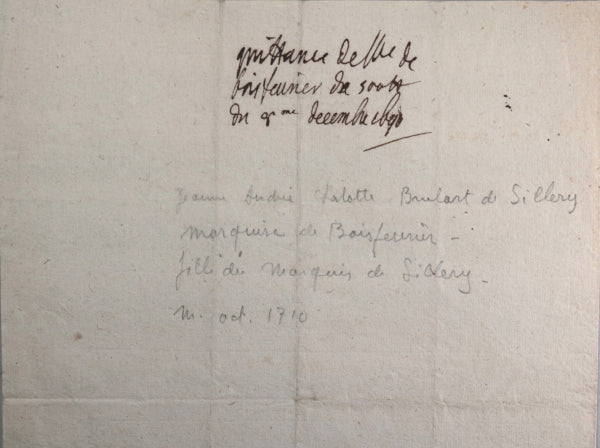 quittance de Me de
boisfeurier de 500tt
du 8me decembre 1690
Jeanne Andrée Charlotte Brulart de Sillery
marquise de Boisfeurier -
fille du Marquis de Sillery -
m. oct. 1710